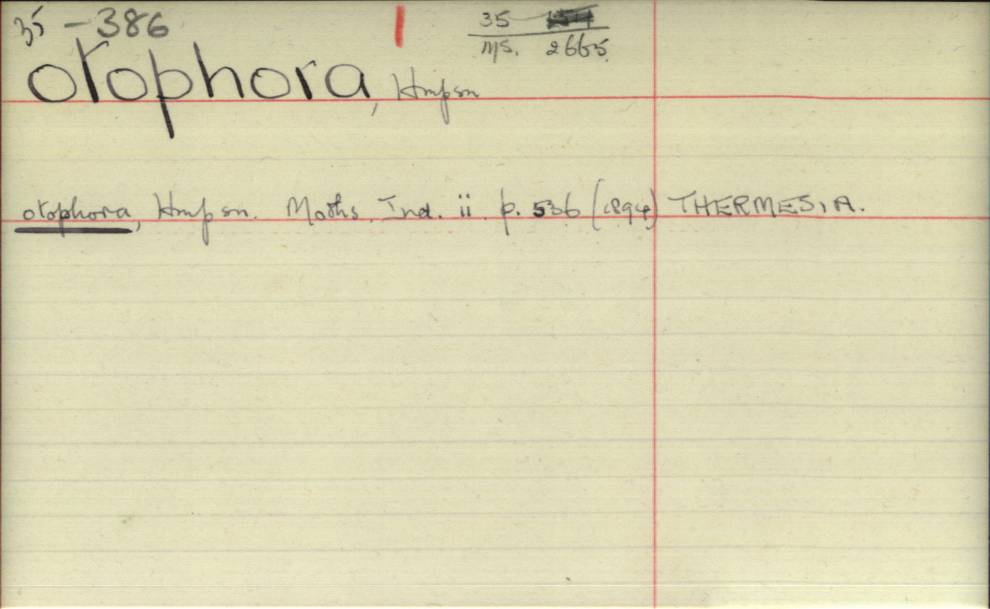 35 - 386
35
MS. 2665.
otophora, Hmpsn
otophora, Hmpsn. Moths. Ind. ii. p. 536 (1894) THERMESIA.